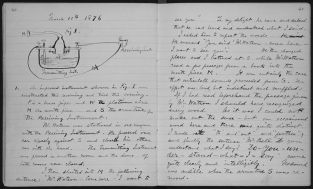 40
March 10th 1876
Fig. 1.
M
1. The improved instrument shown in Fig. 1 was
constructed this morning and tried this evening.
P is a brass pipe and W the platinum wire
M the mouth piece and S the armature of
the Receiving Instrument.
Mr. Watson was stationed in one room
with the Receiving Instrument. He pressed one
ear closely against S and closed his other
ear with his hand. The Transmitting Instrument
was placed in another room and the doors of
both rooms were closed.
I then shouted into M the following
sentence: "Mr. Watson - Come here - I want to
41
see you". To my delight he came and declared
that he had heard and understood what I said.
I asked him to repeat the words.
He answered "You said 'Mr. Watson - come here -
I want to see you'." We then changed
places and I listened at S while Mr. Watson
read a few passages from a book into the
mouth piece M. It was certainly the case
that articulate sounds proceeded from S. The
effect was loud but indistinct and muffled.
If I had read beforehand the passage given
by Mr. Watson I should have recognized
every word. As it was I could not
make out the sense - but an occasional
word here and there was quite distinct.
I made out "to" and "out" and "further";
and finally the sentence "Mr. Bell do you
understand what I say? Do - you - un -
der - stand - what - I - say" came
quite clearly and intelligibly. No sound
was audible when the armature S was re-
moved.